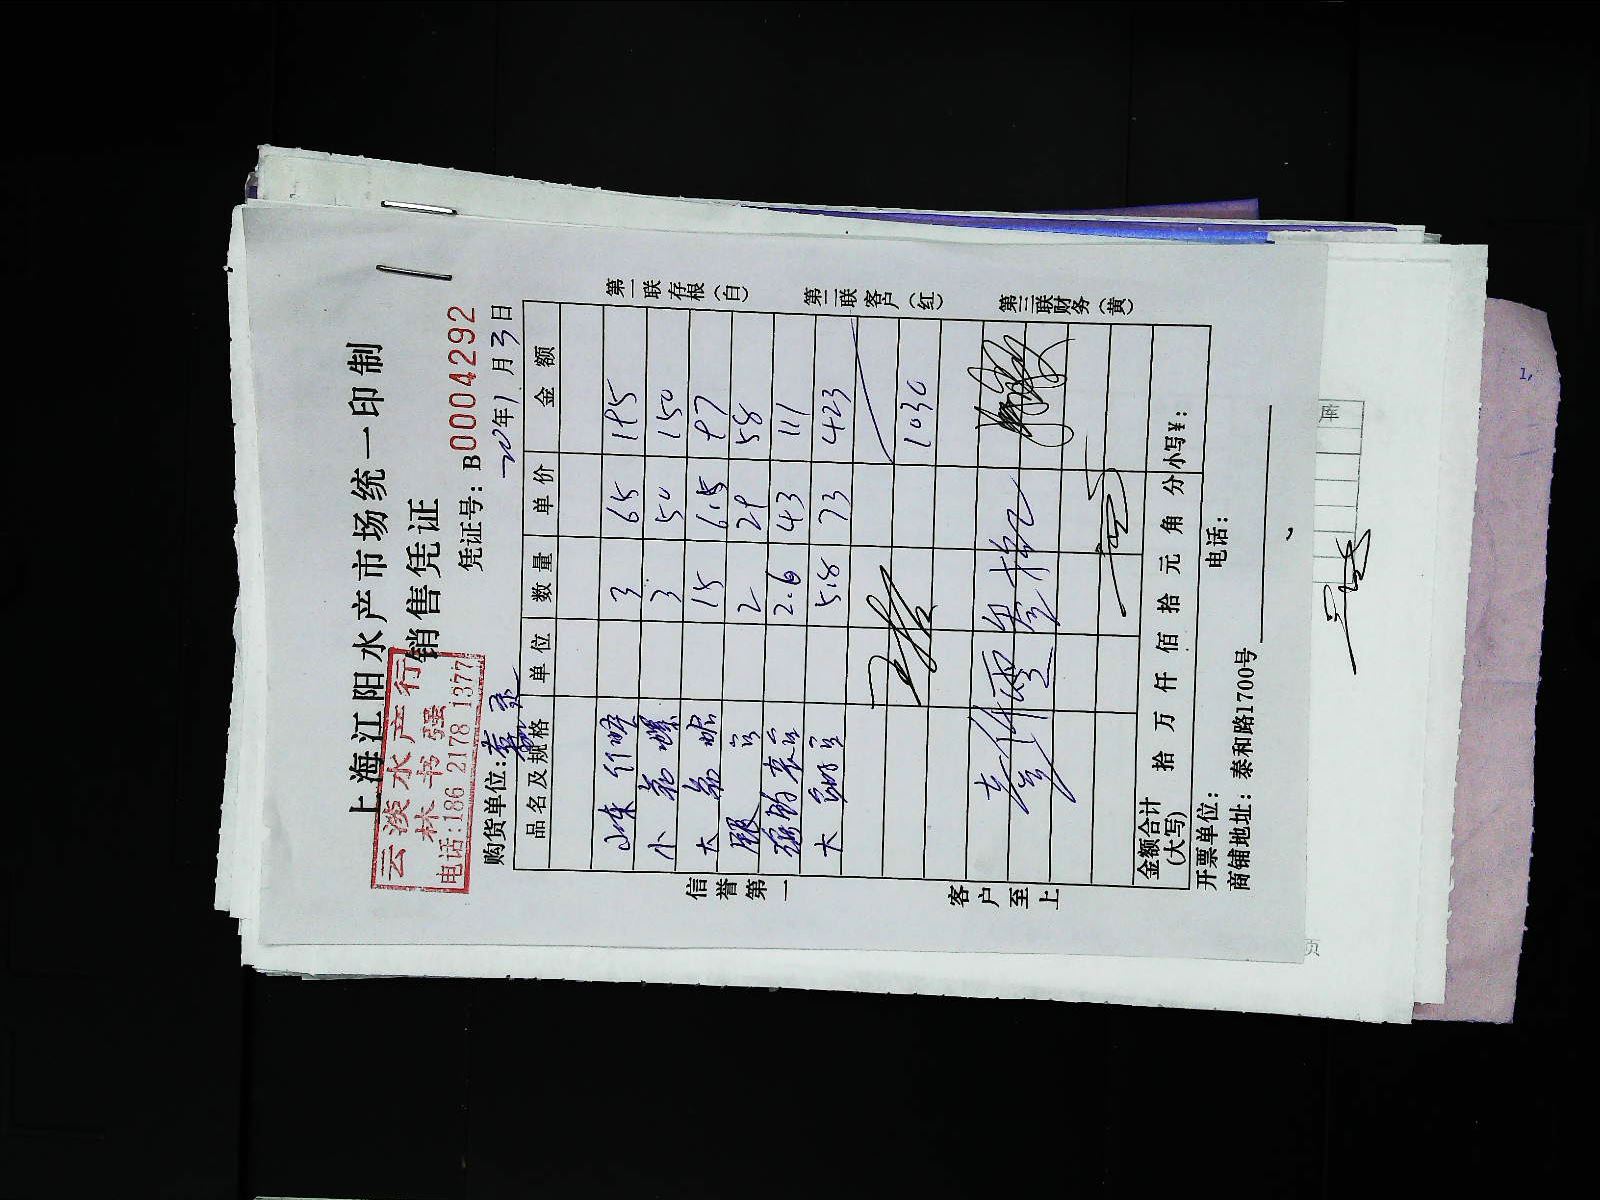 上海江阳水产市场统一印制
销售凭证
云淡水产行
林书强
电话:186 2178 1377
凭证号: B0004292
购货单位:
年1月3日
品名及规格 单位 数量 单价 金额
3 65 195
小花螺 3 50 150
大 15 6.5 97
2 29 58
2.6 43 111
大 5.8 73 423
1030
金额合计(大写) 拾 万 仟 佰 拾 元 角 分 小写¥:
开票单位: 电话:
商铺地址: 泰和路1700号
信誉第一
客户至上
第一联存根(白)
第二联客户(红)
第三联财务(黄)
库
页
1,